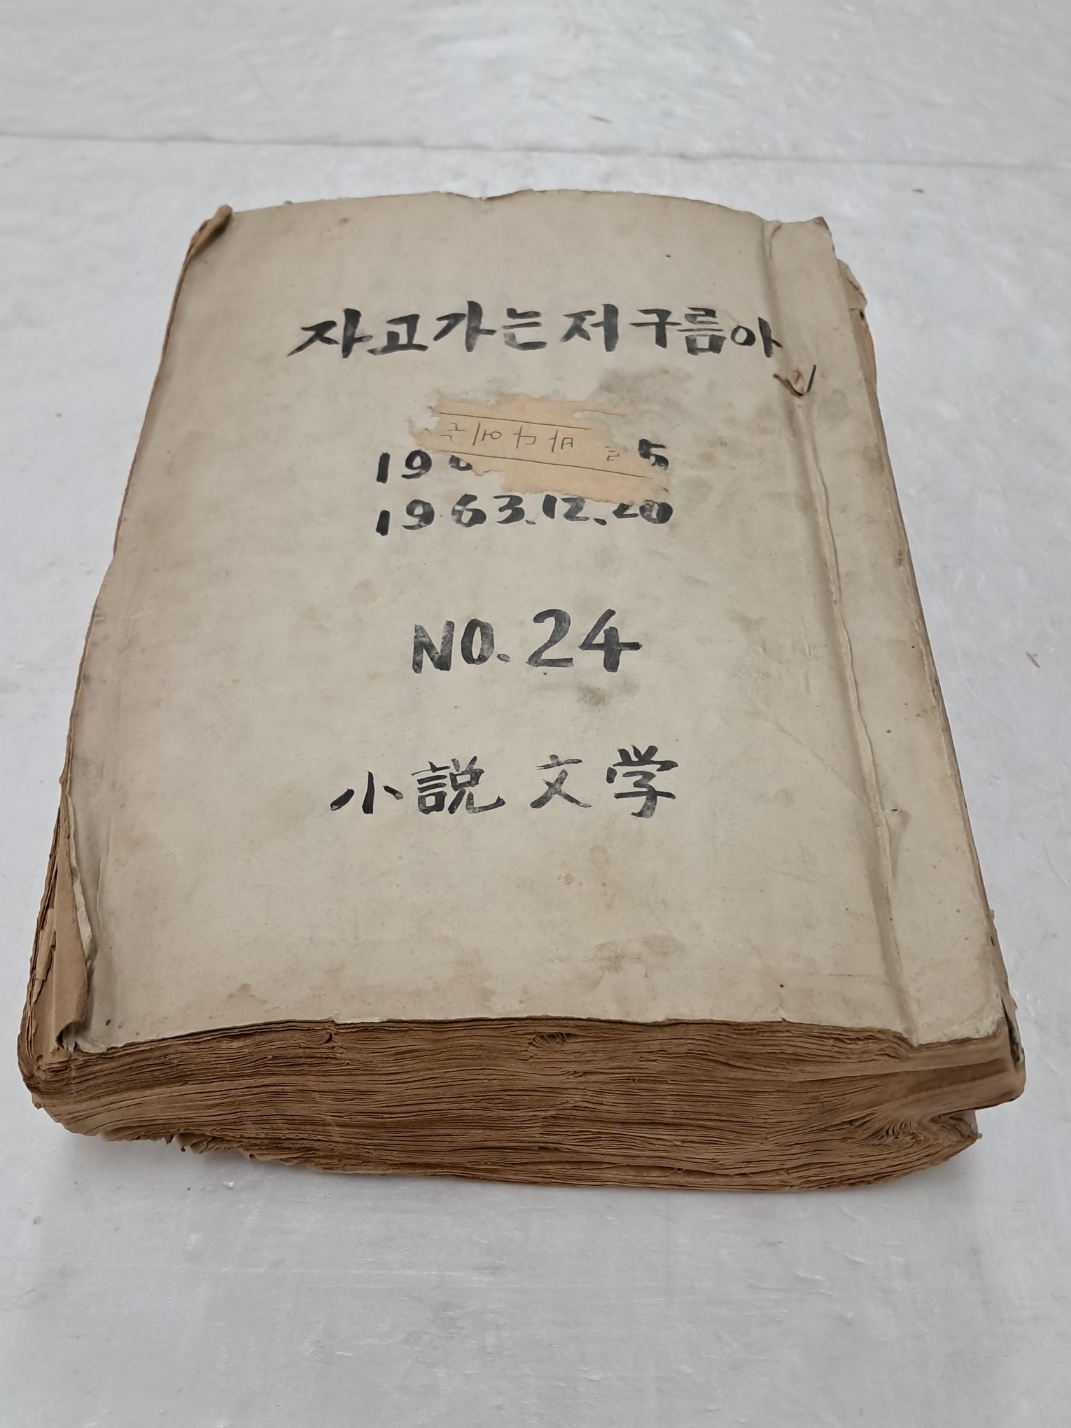 자고가는 저 구름아
19 5
1963.12.20
NO. 24
小説 文学